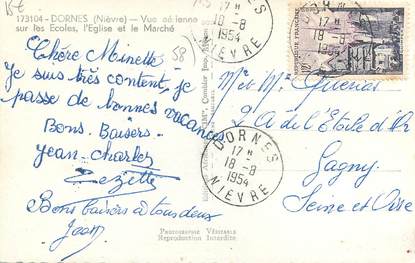 15€
173104 - DORNES (Nièvre) - Vue aérienne
sur les Ecoles, l'Eglise et le Marché
58
Chère Minette
Je suis très content, je
passe de bonnes vacances
Bons. Baisers.
Jean-Charles
Zezette
Bons baisers à tous deux
Jean
Photographie Véritable
Reproduction Interdite
17 H
18-8
1954
NIEVRE
DORNES
17 H
18-8
1954
NIEVRE
17 H
18-8
1954
Mr et Me Guerier
2 A de l'Etoile d'Or
Gagny
Seine et Oise